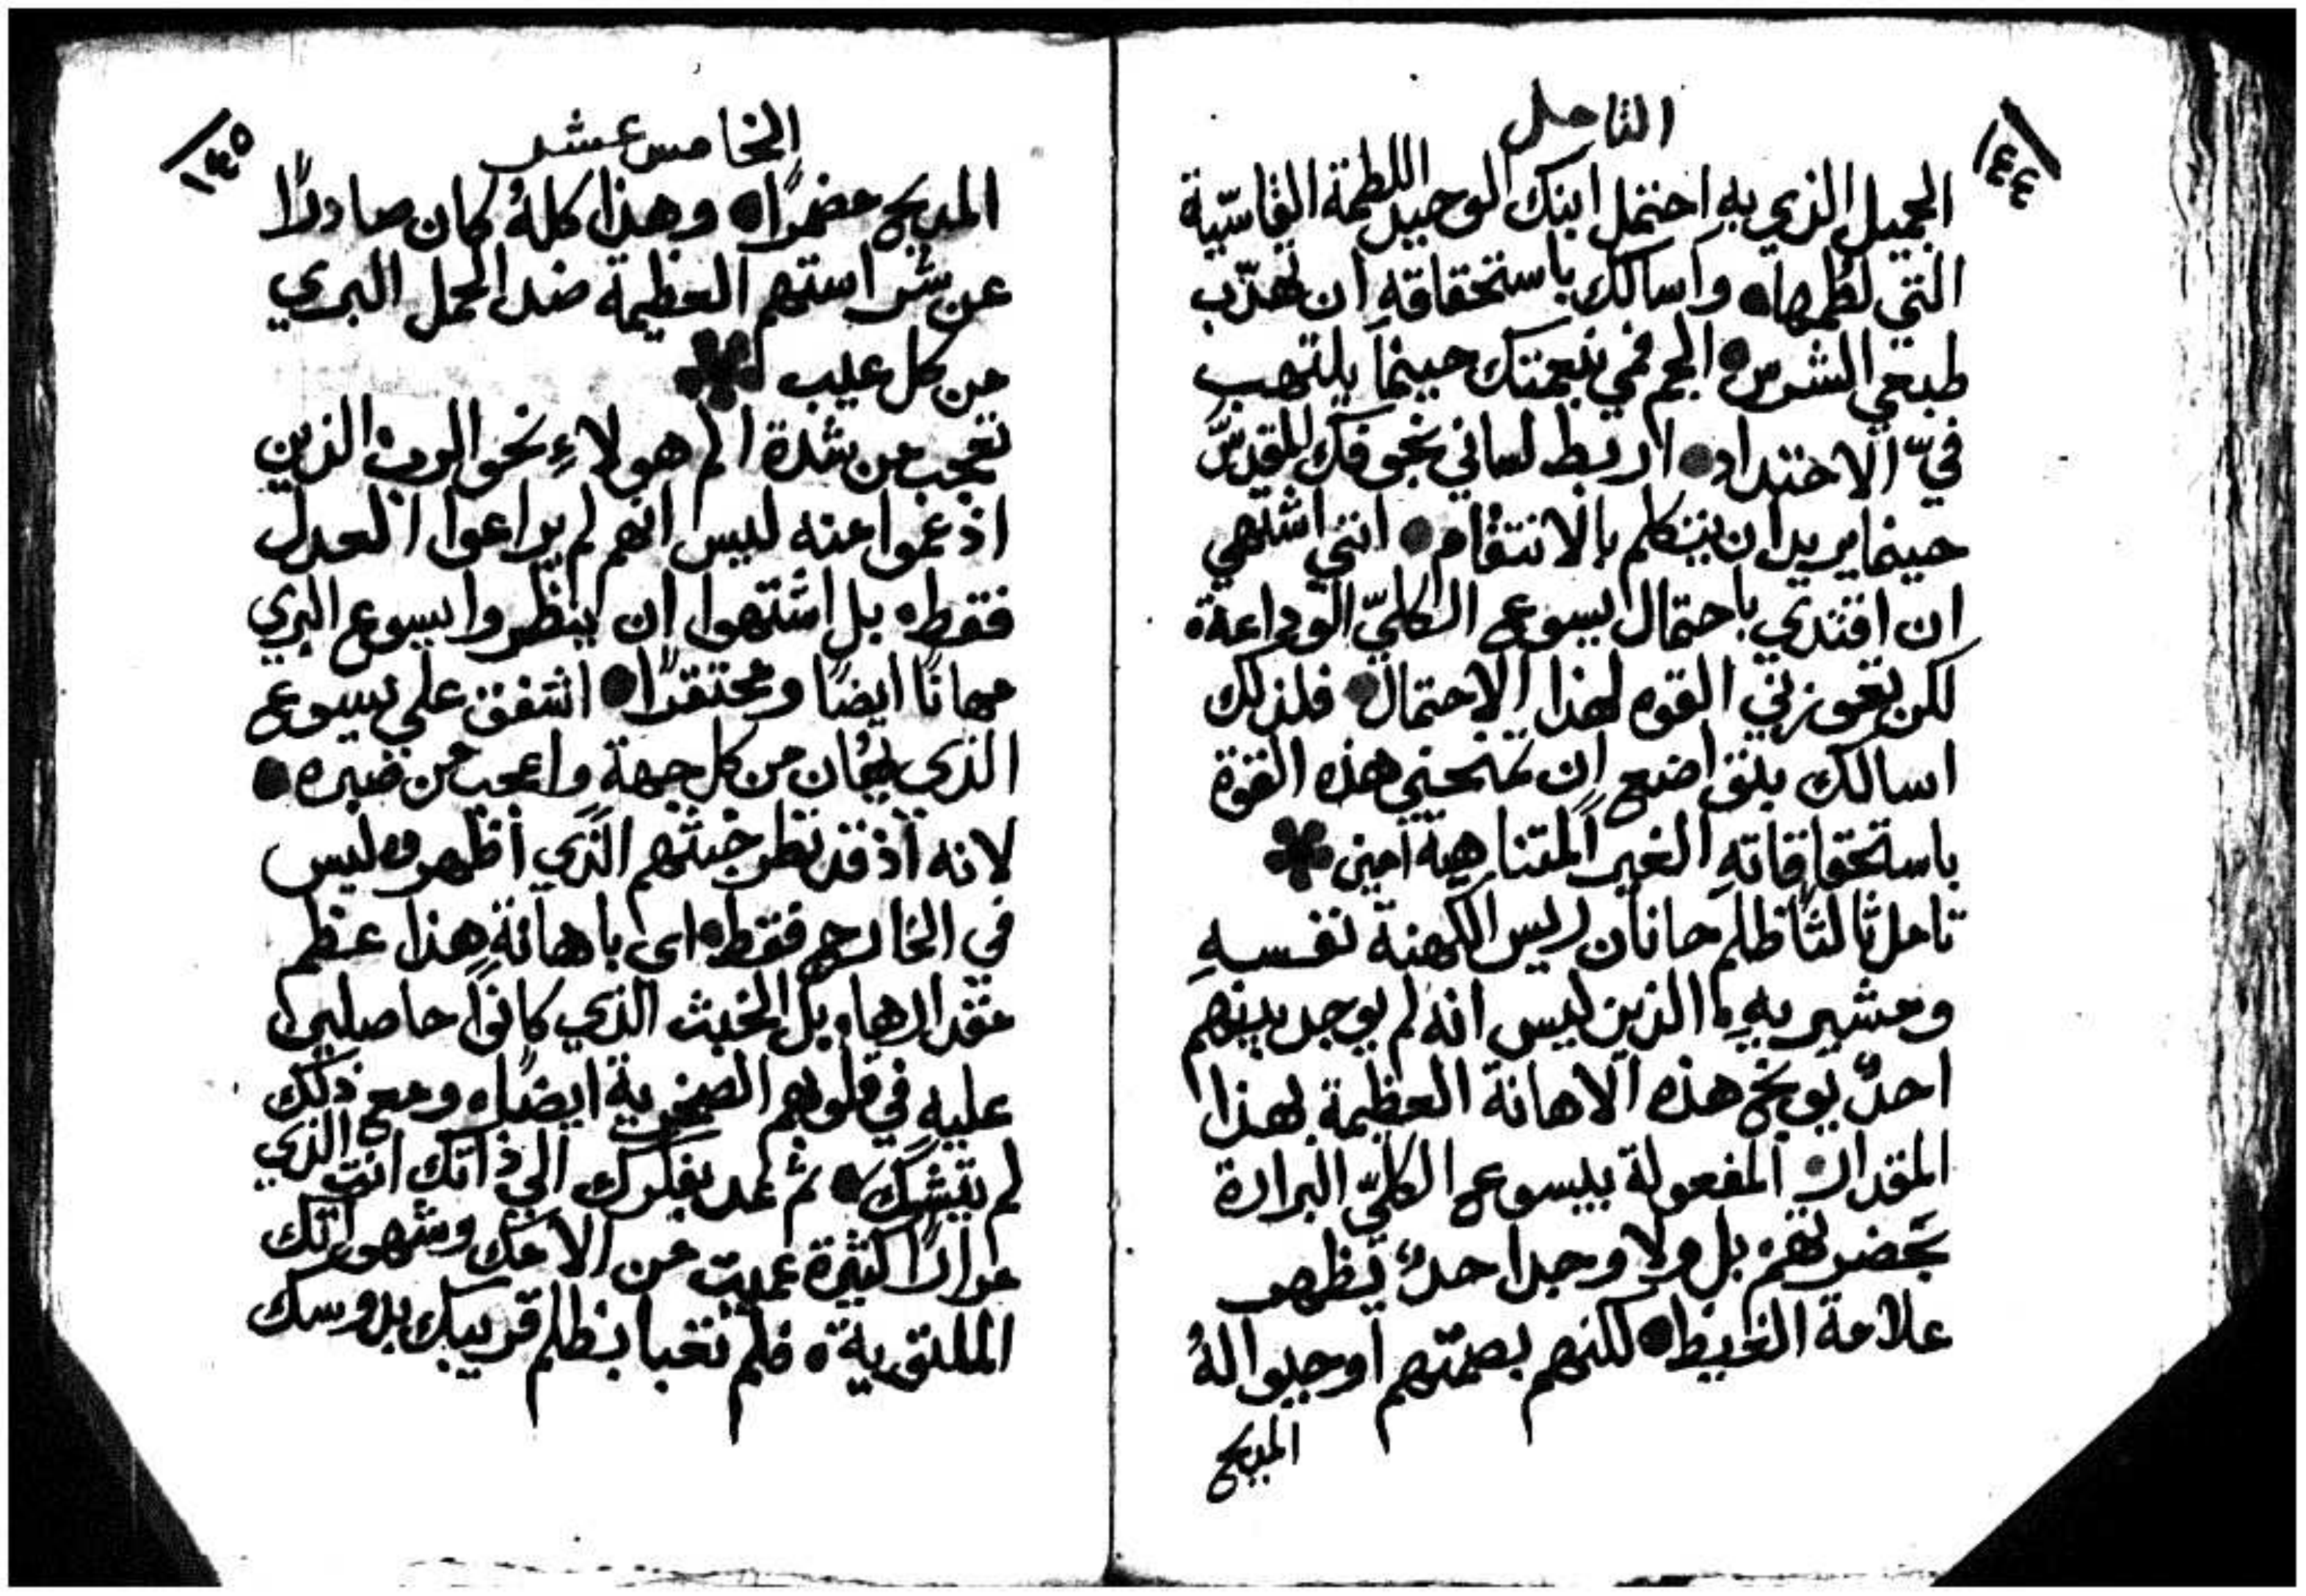 ١٤٤
التامل
الجميل الذي به احتمل ابنك الوحيد اللطمة القاسّية
التي لُطمها٠ واسالك باستحقاقهِ ان تهذّب
طبعي الشرس٠ الجم فمي بنعمتك حينما يلتهب
فيّ الاحتداد٠ اربط لساني بخوفك المقدّس
حينما يريد ان يتكلم بالانتقام٠ انني اشتهي
ان اقتدي باحتمال يسوع الكليّ الوداعة٠
لكن تعوزني القوه لهذا الاحتمال٠ فلذلك
اسالك بتواضع ان تمنحني هذه القوة
باستحقاقاتهِ الغير المتناهية امين
تامل ثالثًا ظلم حانان ريس الكهنة نفسهِ
ومشيريهِ٠ الذين ليس انه لم يوجد بينهم
احدٌ يوبخ هذه الاهانة العظيمة بهذا
المقدار٠ المفعولة بيسوع الكليّ البرارة
بحضرتهم٠ بل ولا وجد احدٌ يظهر
علامة الغيظ٠ لكنهم بصمتهم اوجبوا لهُ
المديح
١٤٥
الخامس عشر
المديح مضمرًا٠ وهذا كلهُ كان صادرًا
عن شراستهم العظيمة ضد الحمل البري
من كل عيب
تعجب من شدة الم هولاءِ نحو الرب٠ الذين
اذ عموا منه ليس انهم لم يراعوا العدل
فقط٠ بل اشتهوا ان ينظروا يسوع البري
مهانًا ايضًا ومحتقرًا٠ اشفق على يسوع
الذي يُهان من كل جهة واعجب من صبره٠
لانه اذ قد نظر خبثهم الذي اظهروه ليس
في الخارج فقط٠ اى باهانة هذا عظم
مقدارها٠ بل الخبث الذي كانوا حاصلين
عليه في قلوبهم الصخرية ايضًا٠ ومع ذلك
لم يتشكَ٠ ثم عد بفكرك الى ذاتك انت الذي
مرارًا كثيرة عميت من الامك وشهواتك
الملتوية٠ فلم تعبا بظلم قريبك بدوسك